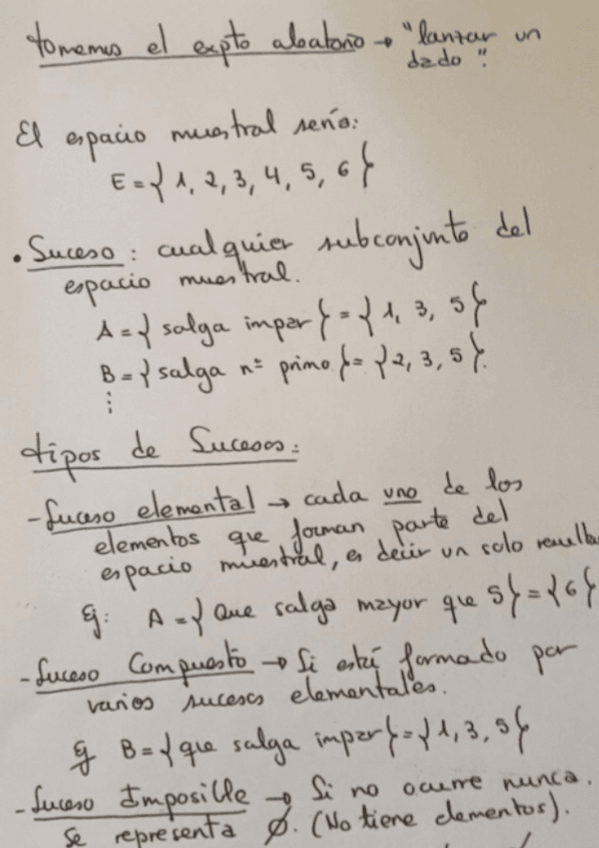 tomemos el expto aleatorio → "lanzar un
dado".
El espacio muestral sería:
E = { 1, 2, 3, 4, 5, 6 }
• Suceso : cualquier subconjunto del
espacio muestral.
A = { salga impar } = { 1, 3, 5 }
B = { salga nº primo } = { 2, 3, 5 }.
⋮
tipos de Sucesos:
- Suceso elemental → cada uno de los
elementos que forman parte del
espacio muestral, es decir un solo resulta
Ej: A = { Que salga mayor que 5 } = { 6 }
- Suceso Compuesto → Si está formado por
varios sucesos elementales.
Ej B = { que salga impar } = { 1, 3, 5 }
- Suceso Imposible → Si no ocurre nunca.
Se representa Ø. (No tiene elementos).